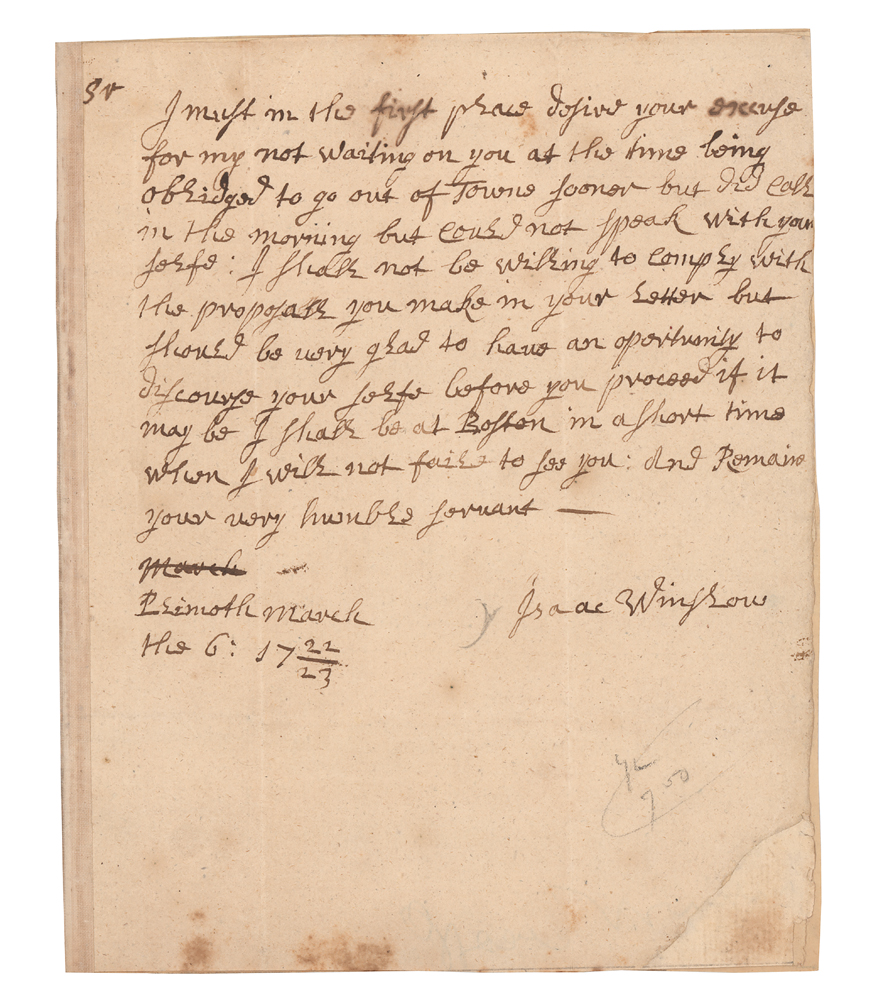 Sr
I must in the first place desire your excuse
for my not waiting on you at the time being
oblidged to go out of Towne sooner but did call
in the morning but could not speak with your
selfe : I shall not be willing to comply with
the proposall you make in your letter but
should be very glad to have an oportunity to
discourse your selfe before you proceed if it
may be I shall be at Boston in a short time
when I will not faile to see you : And Remaine
your very humble servant —
March
Plimoth March
Isaac Winslow
the 6: 17 22/23
7 50